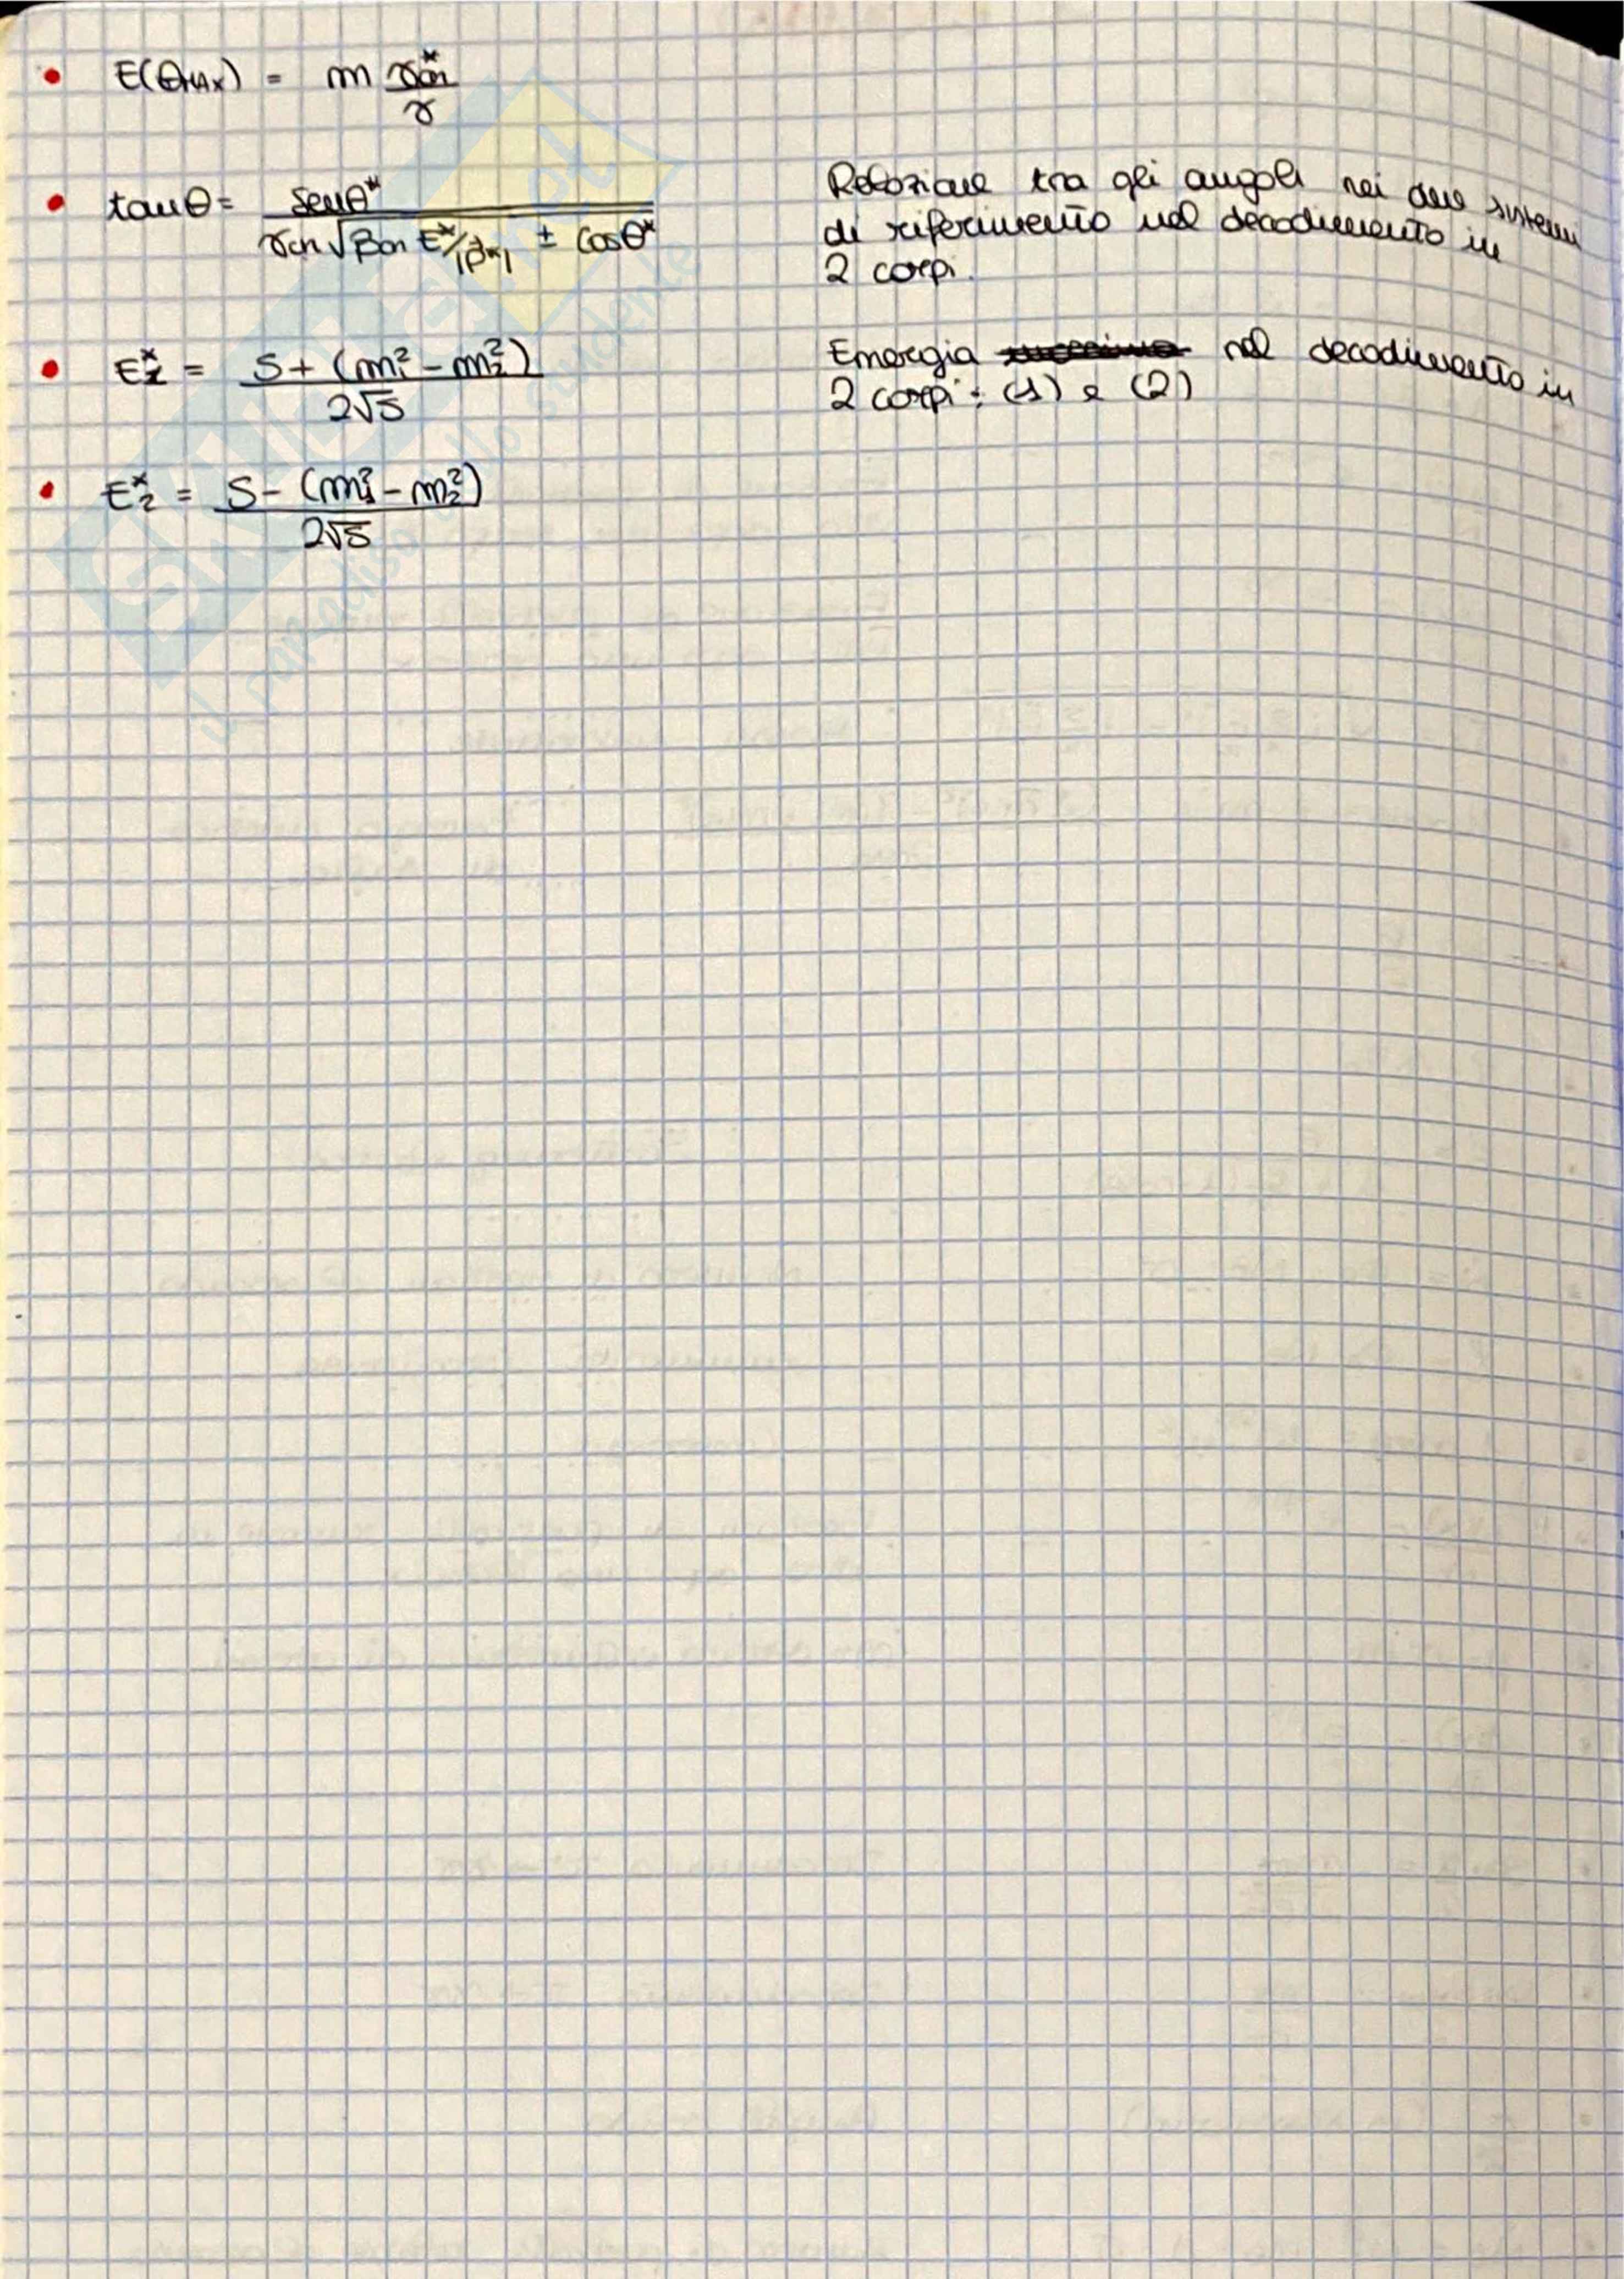 • E(θMAX) = m γ*cm / γ
• tanθ = senθ* / γcm √βcm E*/|p*| ± cosθ*
Relazione tra gli angoli nei due sistemi
di riferimento nel decadimento in
2 corpi.
• E*1 = S + (m1² - m2²) / 2√S
Energia nel decadimento in
2 corpi: (1) e (2)
• E*2 = S - (m1² - m2²) / 2√S
SKUOLA.net
il paradiso dello studente